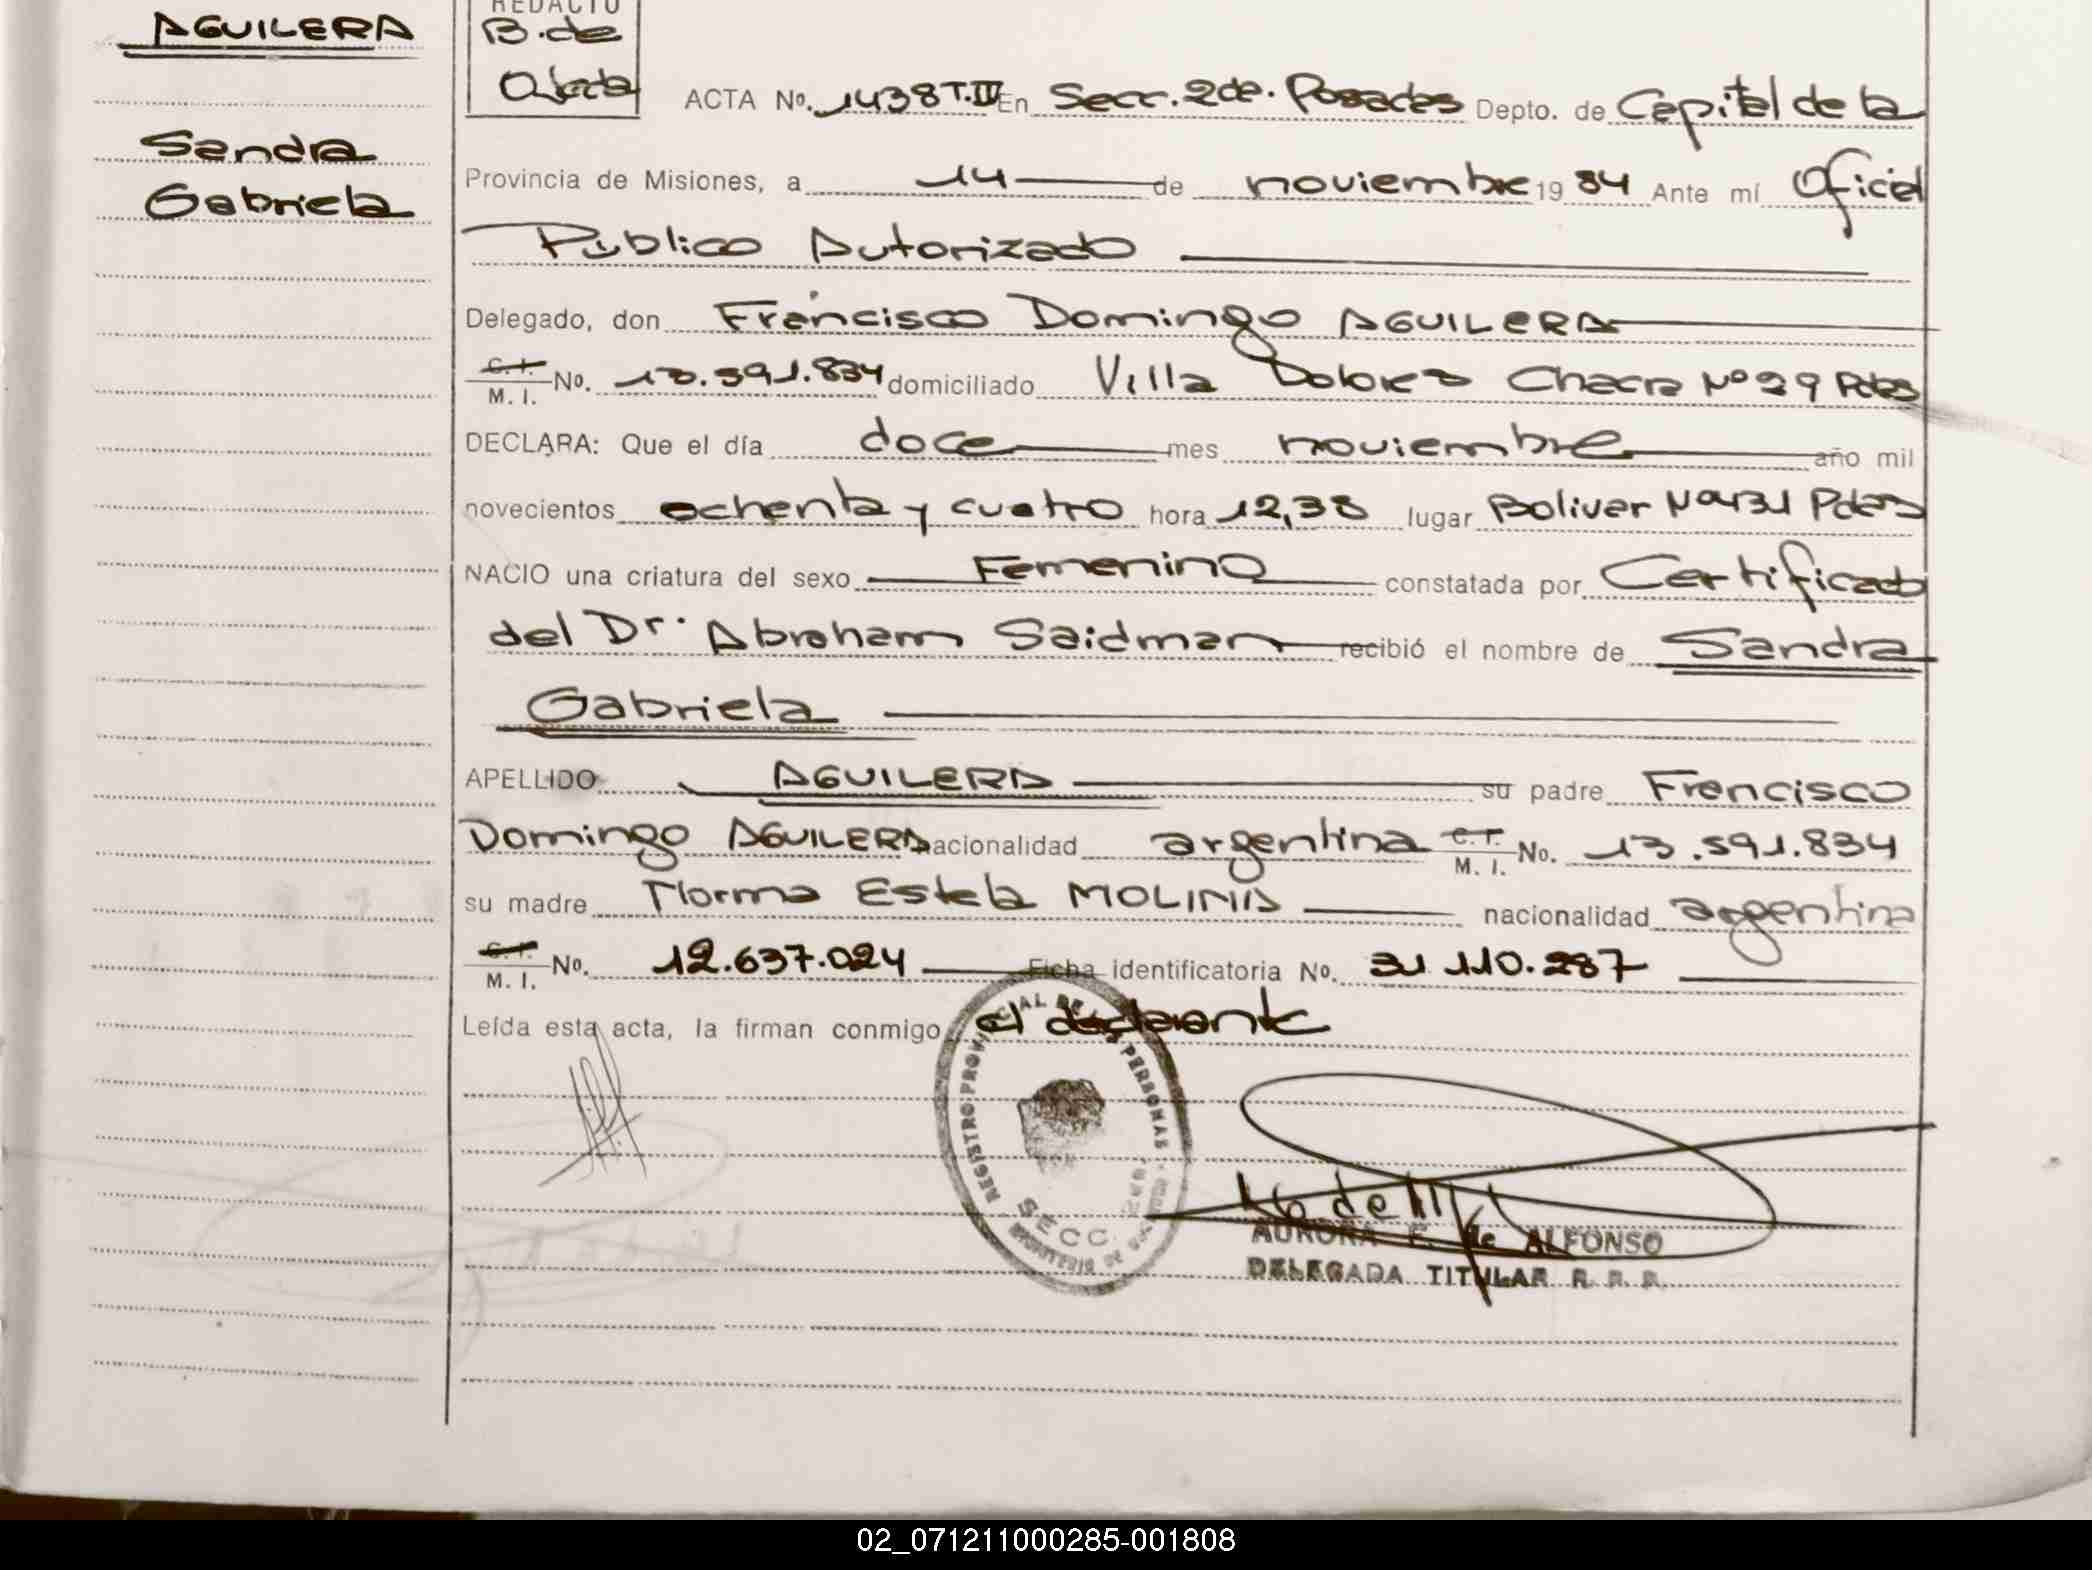 AGUILERA
Sandra
Gabriela
REDACTO
B. de
Ojeda
ACTA No. 1438 T. IV En Secc. 2da. Posadas Depto. de Capital de la
Provincia de Misiones, a 14 de noviembre 19 84 Ante mí Oficial
Público Autorizado
Delegado, don Francisco Domingo AGUILERA
C. I.
M. I. No. 13.591.834 domiciliado Villa Dolores Chacra Nº 29 Pdas
DECLARA: Que el día doce mes noviembre año mil
novecientos ochenta y cuatro hora 12,38 lugar Bolivar Nº 431 Pdas
NACIO una criatura del sexo Femenino constatada por Certificado
del Dr. Abraham Saidman recibió el nombre de Sandra
Gabriela
APELLIDO AGUILERA su padre Francisco
Domingo AGUILERA nacionalidad argentina C. I. M. I. No. 13.591.834
su madre Norma Estela MOLINA nacionalidad argentina
C. I.
M. I. No. 12.637.024 Ficha identificatoria No. 31.110.287
Leída esta acta, la firman conmigo el declarante
REGISTRO PROVINCIAL DE PERSONAS
SECC. 2da.
AURORA E. de ALFONSO
DELEGADA TITULAR R. P. P.
02_071211000285-001808